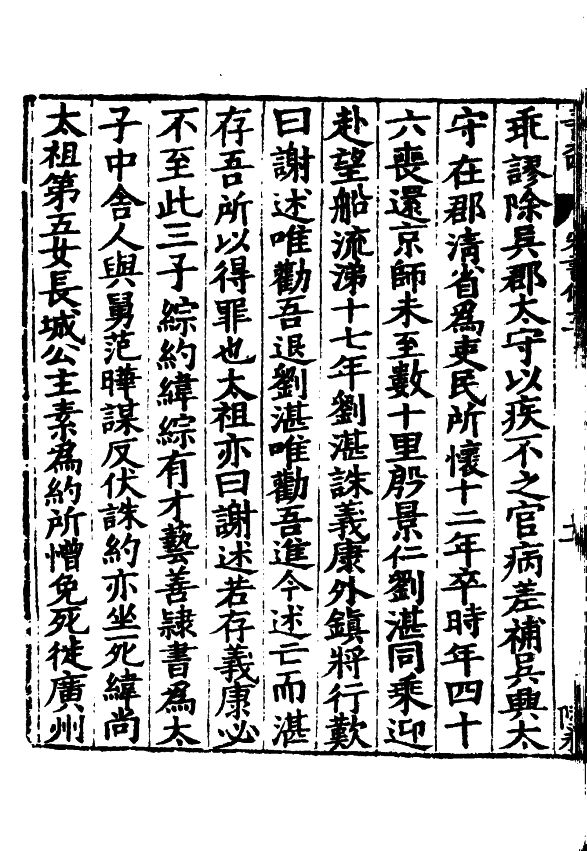 乖謬除吳郡太守以疾不之官病差補吳興太
守在郡清省爲吏民所懷十二年卒時年四十
六喪還京師未至數十里殷景仁劉湛同乘迎
赴望船流涕十七年劉湛誅義康外鎮將行歎
曰謝述唯勸吾退劉湛唯勸吾進今述亡而湛
存吾所以得罪也太祖亦曰謝述若存義康必
不至此三子綜約緯綜有才藝善隷書爲太
子中舍人與舅范曄謀反伏誅約亦坐死緯尚
太祖第五女長城公主素爲約所憎免死徙廣州